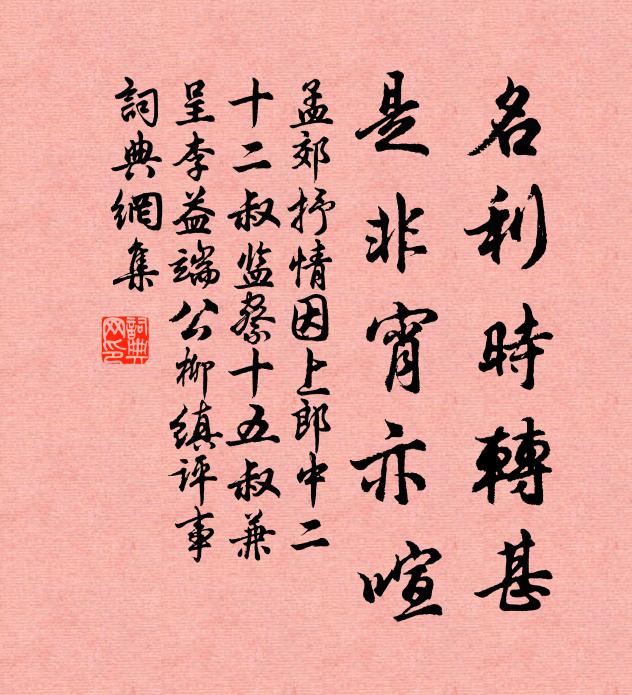 名利時轉甚
是非宵亦喧
孟郊抒情因上郎中二
十二叔监察十五叔兼
呈李益端公柳縝评事
詞典網集
詞典網印